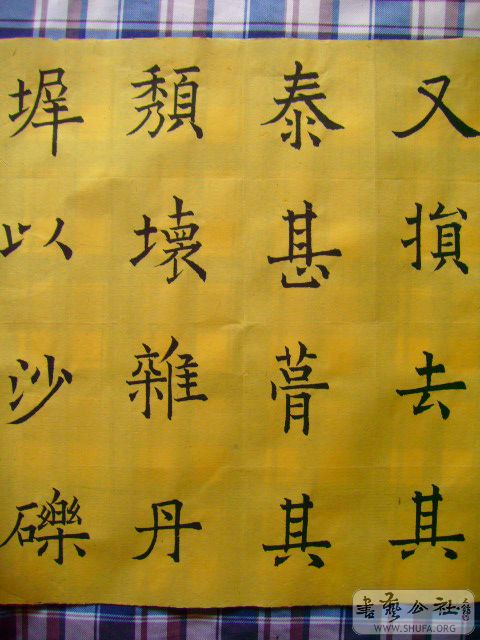 又損去其
泰甚葺其
頹壞雜丹
墀以沙礫
書藝公社
WWW.SHUFA.ORG